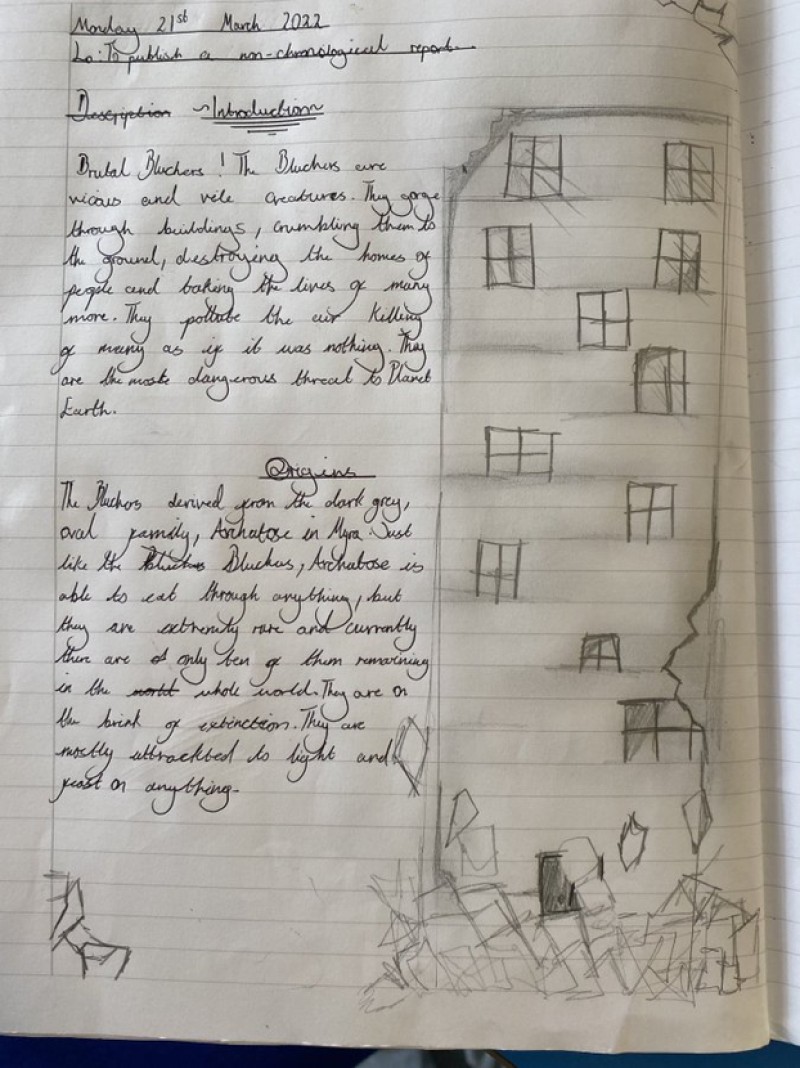 Monday 21st March 2022
Lo: To publish a non-chronological report.
Description ~Introduction~
Brutal Bluchers! The Bluchers are
vicious and vile creatures. They gorge
through buildings, crumbling them to
the ground, destroying the homes of
people and taking the lives of many
more. They pollute the air killing
of many as if it was nothing. They
are the moste dangerous threat to Planet
Earth.
Origins
The Bluchers derived from the dark grey,
oval family, Archatose in Myra. Just
like the Bluchers Bluchas, Archatose is
able to eat through anything, but
they are extremity rare and currently
there are of only ten of them remaining
in the world whole world. They are on
the brink of extinction. They are
mostly attrackted to light and
feast on anything.